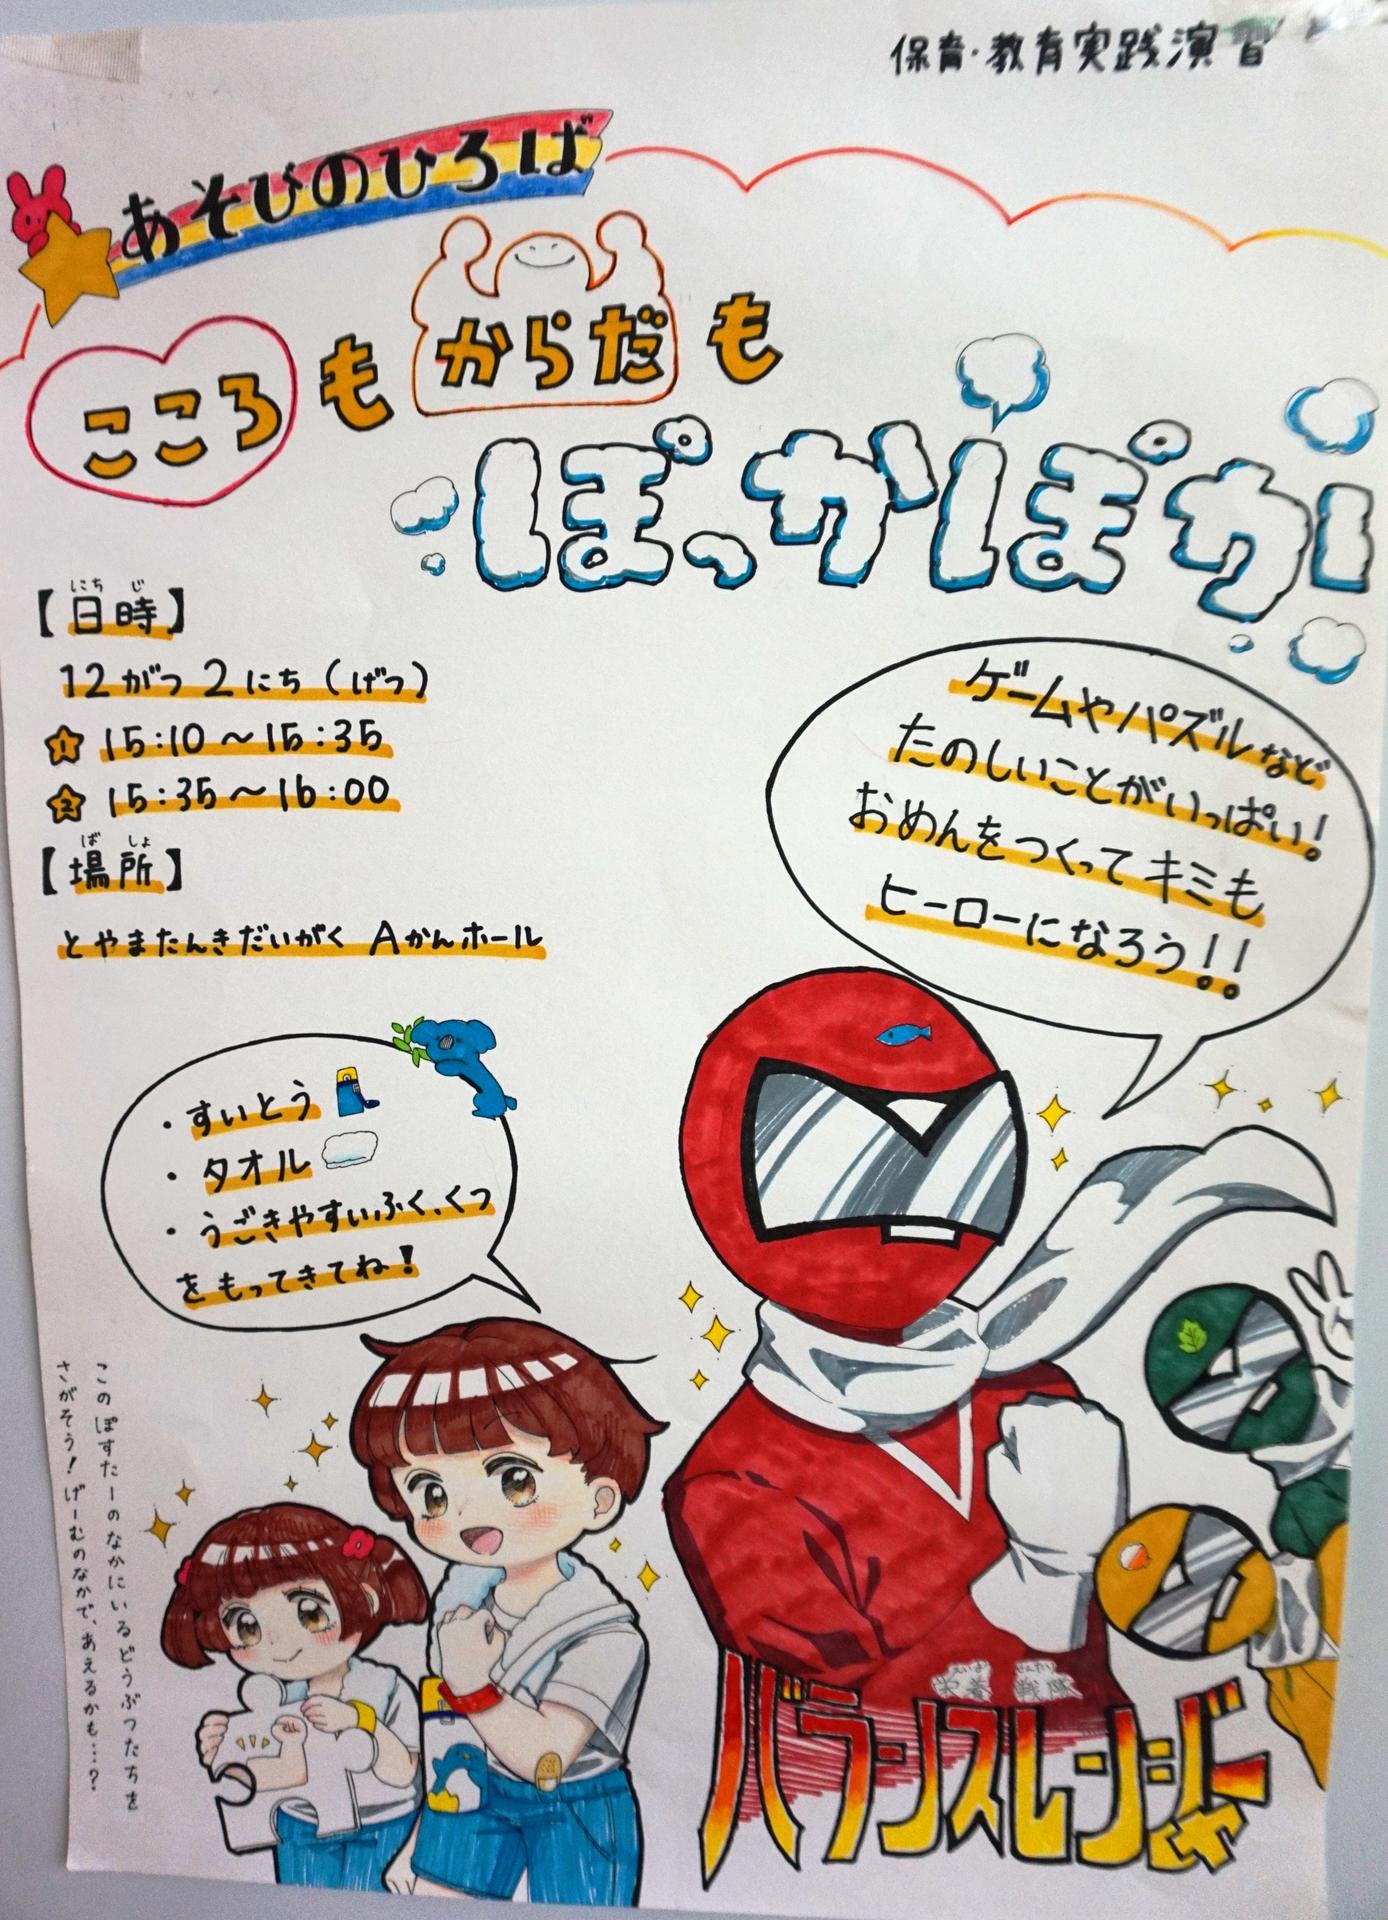 保育・教育実践演習
あそびのひろば
こころもからだも
ぽっかぽか!
にちじ
【日時】
12がつ2にち(げつ)
1 15:10~15:35
2 15:35~16:00
ばしょ
【場所】
とやまたんきだいがく Aかんホール
ゲームやパズルなど
たのしいことがいっぱい!
おめんをつくってキミも
ヒーローになろう!!
・すいとう
・タオル
・うごきやすいふく、くつ
をもってきてね!
このぽすたーのなかにいるどうぶつたちを
さがそう!げーむのなかで、あえるかも……?
えいよう せんたい
栄養 戦隊
バランスレンジャー